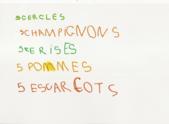 5 CERCLES
5 CHAMPIGNONS
5 CERISES
5 POMMES
5 ESCARGOTS